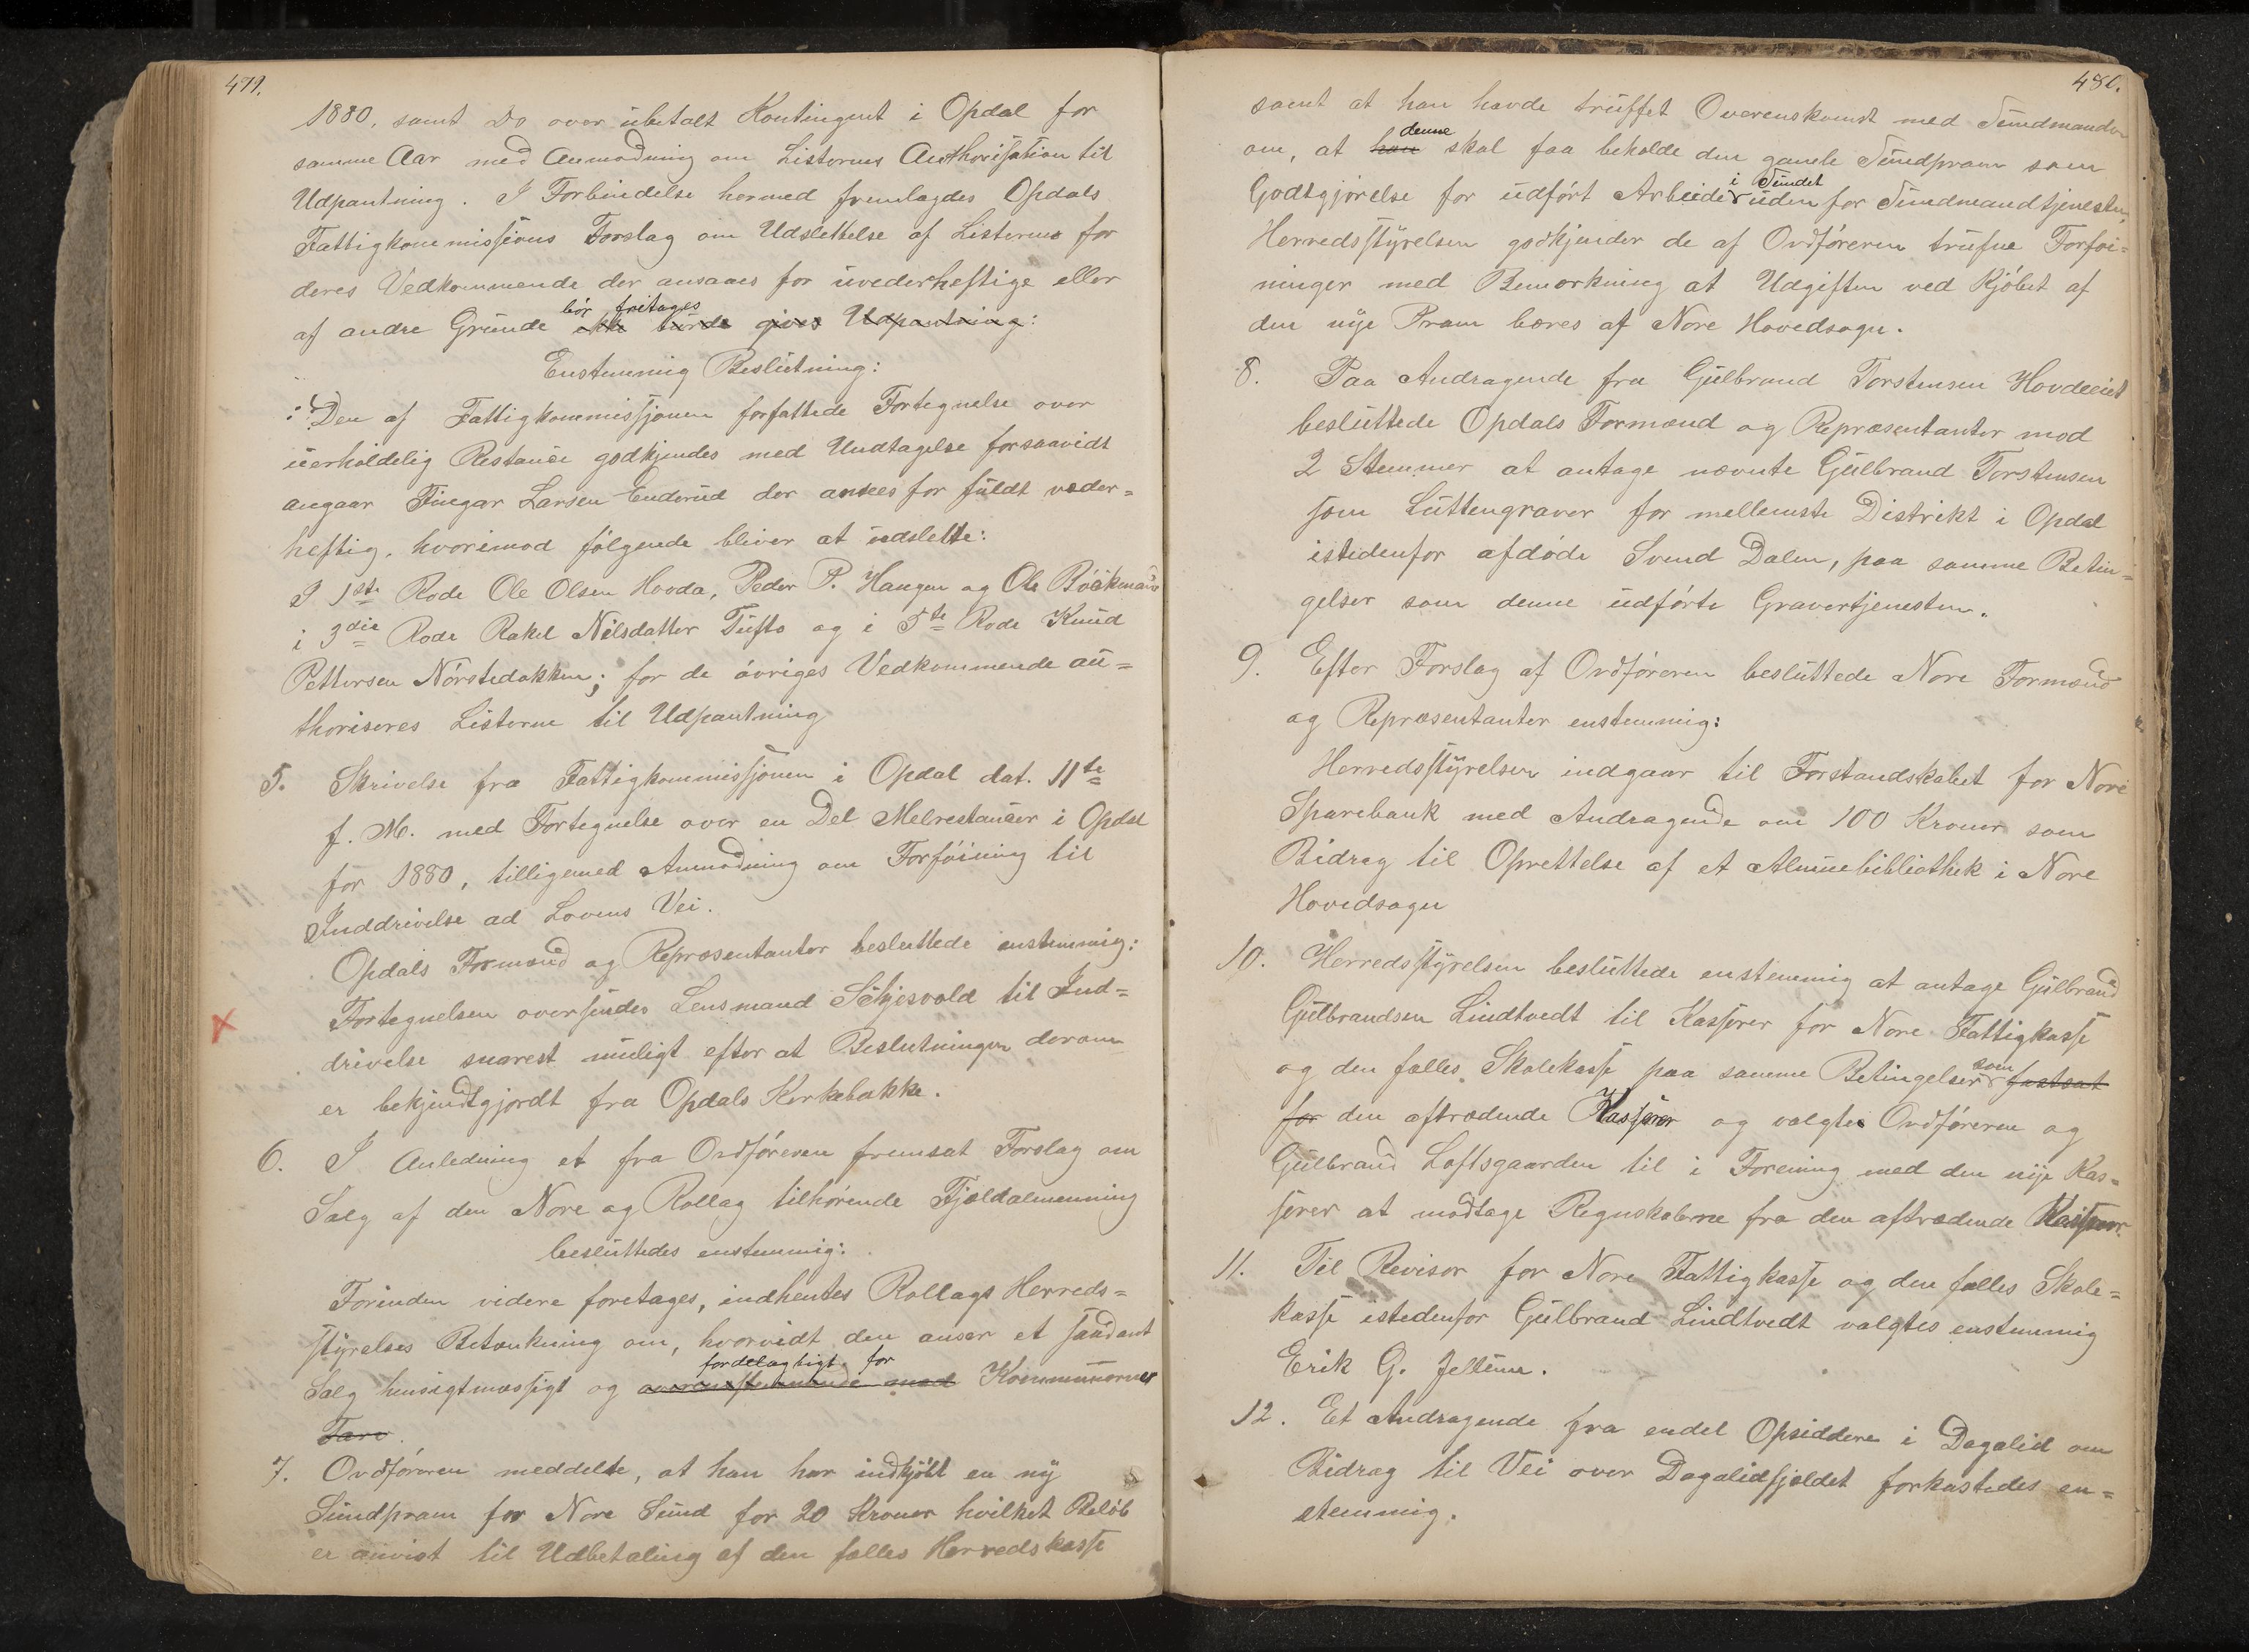 479.
1880, samt Do over ubetalt Kontingent i Opdal for
samme Aar med Anmodning om Listernes Authorisation til
Udpantning. I Forbindelse hermed fremlagdes Opdals
Fattigkommissions Forslag om Udslettelse af Listerne for
deres Vedkommende der ansaaes for uvederheftige eller
bör fritages
af andre Grunde ikke burde gives Udpantning:
Enstemmig Beslutning:
Den af Fattigkommissjonen forfattede Fortegnelse over
uerholdelig Restancer godkjendes med Undtagelse forsaavidt
angaar Fingar Larsen Enderud der ansees for fuldt veder=
heftig, hvorimod fölgende bliver at udslette:
I 1ste Rode Ole Olsen Hovda, Peder P. Haugen og Ole
i 3die Rode Rakel Nilsdatter Tufto og i 5te Rode Knud
Pettersen Nörstebakken; for de övriges Vedkommende au=
thoriseres Listerne til Udpantning
5. Skrivelse fra Fattigkommissjonen i Opdal dat. 11te
f. M. med Fortegnelse over en Del Melrestancer i Opdal
for 1880, tilligemed Anmodning om Forföining til
Inddrivelse ad Lovens Vei.
Opdals Formænd og Repræsentanter besluttede enstemmig:
Fortegnelsen oversendes Lensmand Skjesvold til Ind=
drivelse snarest muligt efter at Beslutningen derom
er bekjendtgjordt fra Opdals Kirkebakke.
6. I Anledning et fra Ordföreren fremsat Forslag om
Salg af den Nore og Rollag tilhörende Fjeldalmenning
besluttedes enstemmig:
Forinden videre foretages, indhentes Rollags Herreds=
styrelses Betænkning om, hvorvidt den anser et saadant
fordelagtigt for
Salg hensigtmæssigt og overensstemmende med Kommunernes
Tarv.
7. Ordföreren meddelte, at han har indkjöbt en ny
Sundpram for Nore Sund for 20 Kroner hvilket Belöb
er anvist til Udbetaling af den fælles Herredskasse
480.
samt at han havde truffet Overenskomst med Sundmanden
denne
om, at han skal faa beholde den gamle Sundpram som
i Sundet
Godtgjörelse for udfört Arbeide udenfor Sundmandtjenesten.
Herredsstyrelsen godkjender de af Ordföreren trufne Forföi=
ninger med Bemærkning at Udgiften ved Kjöbet af
den nye Pram bæres af Nore Hovedsogn.
8. Paa Andragende fra Gulbrand Torstensen Hovdeeiet
besluttede Opdals Formænd og Repræsentanter mod
2 Stemmer at antage nævnte Gulbrand Torstensen
som Luttengraver for mellemste Distrikt i Opdal
istedenfor afdöde Svend Dalen, paa samme Betin=
gelser som denne udförte Gravertjenesten.
9. Efter Forslag af Ordföreren besluttede Nore Formænd
og Repræsentanter enstemmig:
Herredsstyrelsen indgaar til Forstandskabet for Nore
Sparebank med Andragende om 100 Kroner som
Bidrag til Oprettelse af et Almuebibliothek i Nore
Hovedsogn
10. Herredsstyrelsen besluttede enstemmig at antage Gulbrand
Gulbrandsen Lindtvedt til Kasserer for Nore Fattigkasse
som
og den fælles Skolekasse paa samme Betingelser fastsat
for den aftrædende Kasserer og valgtes Ordföreren og
Gulbrand Loftsgaarden til i Forening med den nye Kas=
serer at modtage Regnskaberne fra den aftrædende Kasserer.
11. Til Revisor for Nore Fattigkasse og den fælles Skole=
kasse istedenfor Gulbrand Lindtvedt valgtes enstemmig
Erik G. Jellum.
12. Et Andragende fra endel Opsiddere i Dagalid om
Bidrag til Vei over Dagalidfjeldet forkastedes en=
stemmig.